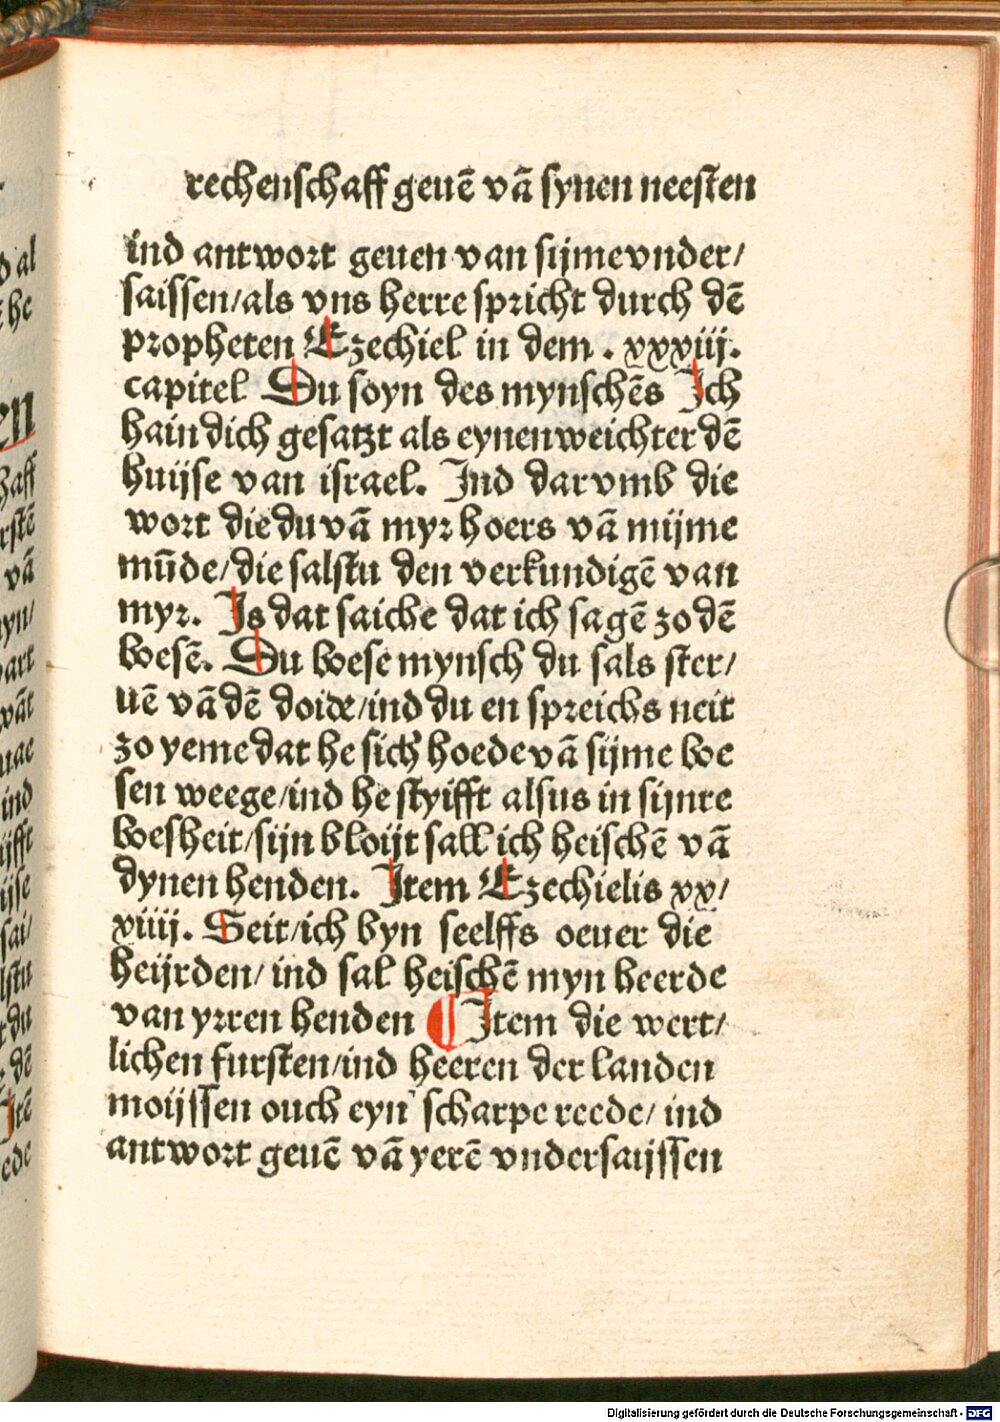 rechenschaff geuē vā synen neesten
ind antwort geuen van sijme vnder/
saissen/als vns herre spricht durch dē
propheten Ezechiel in dem . xxxiij.
capitel Du soyn des mynschēs Ich
hain dich gesatzt als eynen weichter dē
huijse van israel. Ind darvmb die
wort die du vā myr hoers vā mijme
mūde/die salstu den verkundigē van
myr. Is dat saiche dat ich sagē zo dē
boesē. Du boese mynsch du sals ster/
uē vā dē doide/ind du en spreichs neit
zo yeme dat he sich hoede vā sijme boe
sen weege/ind he styifft alsus in sijnre
boesheit/sijn bloijt sall ich heischē vā
dynen henden. Item Ezechielis xx/
xiiij. Seit/ich byn seelffs oeuer die
heijrden/ ind sal heischē myn heerde
van yrren henden ¶ Item die wert/
lichen fursten/ind heeren der landen
moijssen ouch eyn scharpe reede/ ind
antwort geuē vā yerē vndersaijssen
Digitalisierung gefördert durch die Deutsche Forschungsgemeinschaft - DFG